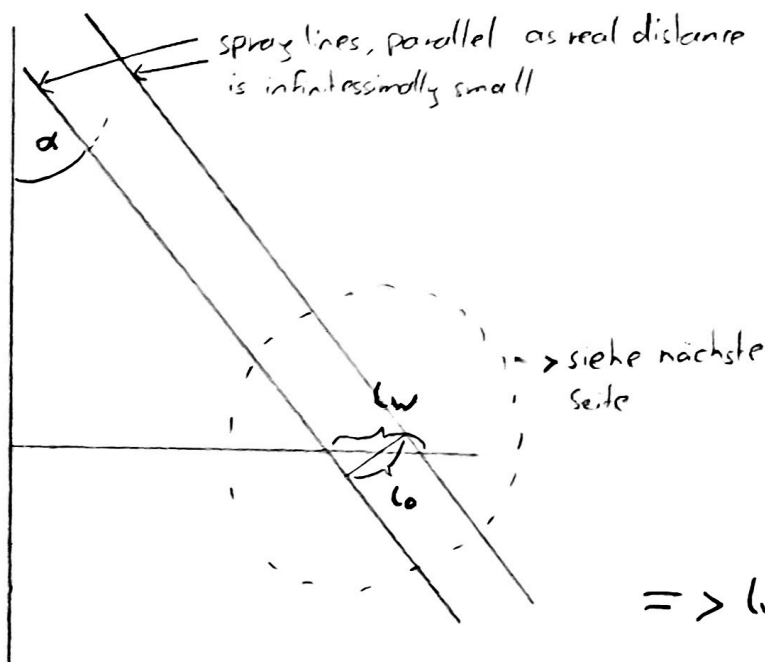 spray lines, parallel as real distance
is infinitessimally small
α
-> siehe nächste
Seite
lw
l0
=> l